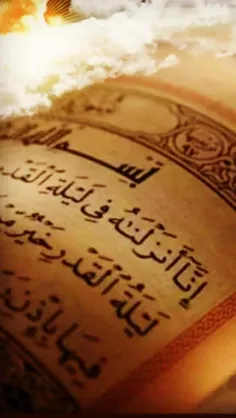 بِسْمِ اللهِ
إِنَّا أَنزَلْنَاهُ فِي لَيْلَةِ الْقَدْ
لَيْلَةُ الْقَدْرِ خَيْرٌ مِّ
فِيهَا بِإِذْنِ رَ